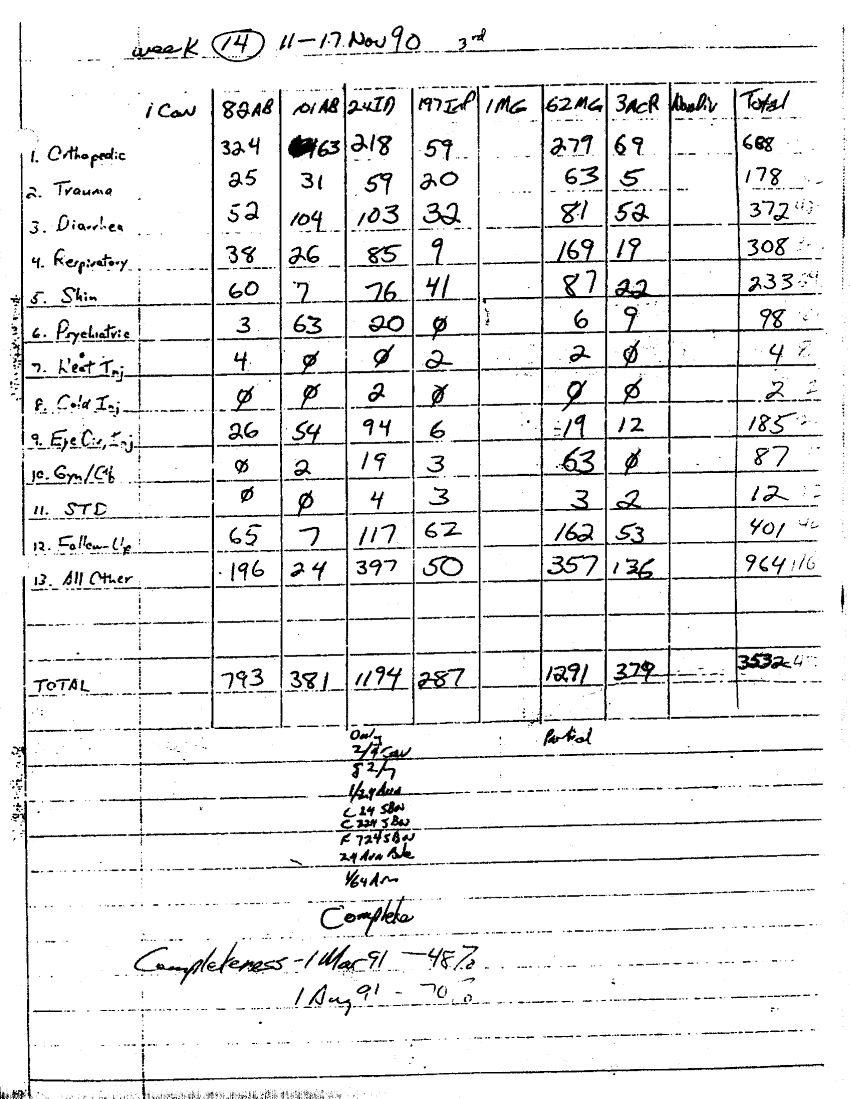 week 14 11-17 Nov 90 3rd
1 Cav 82AB 101AB 24ID 197InF 1MG 62MG 3ACR NonDiv Total
1. Orthopedic 324 63 218 59 279 69 688
2. Trauma 25 31 59 20 63 5 178
3. Diarrhea 52 104 103 32 81 52 372
4. Respiratory 38 26 85 9 169 19 308
5. Skin 60 7 76 41 87 22 233
6. Psychiatric 3 63 20 ∅ 6 9 98
7. Heat Inj 4 ∅ ∅ 2 2 ∅ 4
8. Cold Inj ∅ ∅ 2 ∅ ∅ ∅ 2
9. Eye Inj 26 54 94 6 19 12 185
10. Gyn/ ∅ 2 19 3 63 ∅ 87
11. STD ∅ ∅ 4 3 3 2 12
12. Follow-Up 65 7 117 62 162 53 401
13. All Other 196 24 397 50 357 136 964
TOTAL 793 381 1194 287 1291 379 3532
Only Partial
2/4 Cav
1/24 Avn
C 24 SBN
C 224 SBN
F 724 SBN
24 Avn Bde
1/64 Arm
Complete
Completeness - 1 Mar 91 - 48%
1 Aug 91 - 70%